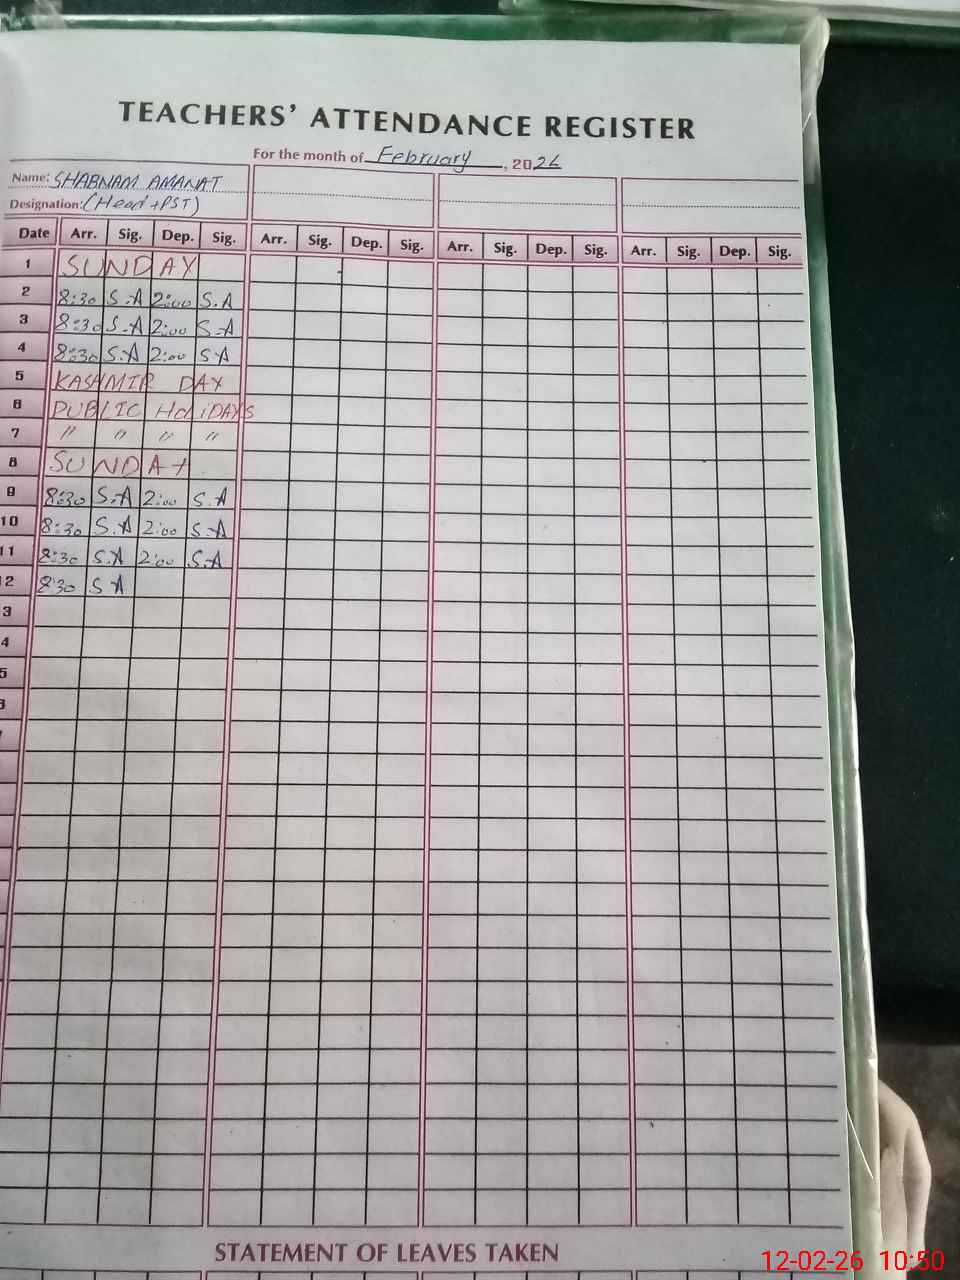 TEACHERS' ATTENDANCE REGISTER
For the month of February, 2026
Name: SHABNAM AMANAT
Designation: (Head + PST)
Date Arr. Sig. Dep. Sig. Arr. Sig. Dep. Sig. Arr. Sig. Dep. Sig. Arr. Sig. Dep. Sig.
1 SUNDAY
2 8:30 S.A 2:00 S.A
3 8:30 S.A 2:00 S.A
4 8:30 S.A 2:00 S.A
5 KASHMIR DAY
6 PUBLIC HOLiDAYS
7 〃 〃 〃 〃
8 SUNDAY
9 8:30 S.A 2:00 S.A
10 8:30 S.A 2:00 S.A
11 8:30 S.A 2:00 S.A
12 8:30 S.A
3
4
5
STATEMENT OF LEAVES TAKEN
12-02-26 10:50